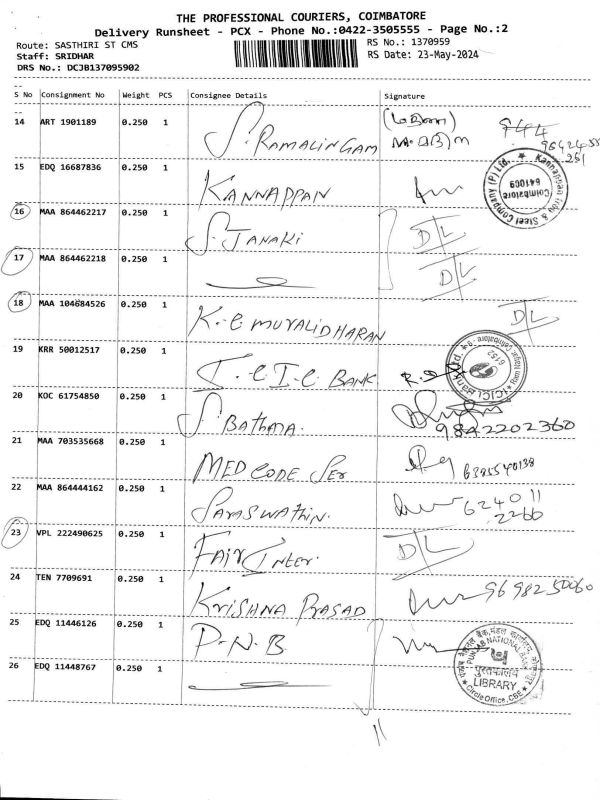 THE PROFESSIONAL COURIERS, COIMBATORE
Delivery Runsheet - PCX - Phone No.:0422-3505555 - Page No.:2
Route: SASTHIRI ST CMS RS No.: 1370959
Staff: SRIDHAR RS Date: 23-May-2024
DRS No.: DCJB137095902
S No Consignment No Weight PCS Consignee Details Signature
14 ART 1901189 0.250 1 S. RAMALINGAM
15 EDQ 16687836 0.250 1 KANNAPPAN
Kannappan Iron & Steel Company (P) Ltd. Coimbatore 641009
16 MAA 864462217 0.250 1 S. JANAKI D/L
17 MAA 864462218 0.250 1 D/L
18 MAA 104684526 0.250 1 K. C MURALIDHARAN D/L
19 KRR 50012517 0.250 1 I. C I. C BANK
20 KOC 61754850 0.250 1 S. 9842202360
21 MAA 703535668 0.250 1 MEDCODE Ser
22 MAA 864444162 0.250 1 624011 2266
23 VPL 222490625 0.250 1 FAIR Inter. D/L
24 TEN 7709691 0.250 1 KRISHNA PRASAD
25 EDQ 11446126 0.250 1 P.N.B
PUNJAB NATIONAL BANK
पुस्तकालय
LIBRARY
Circle Office, CBE
26 EDQ 11448767 0.250 1